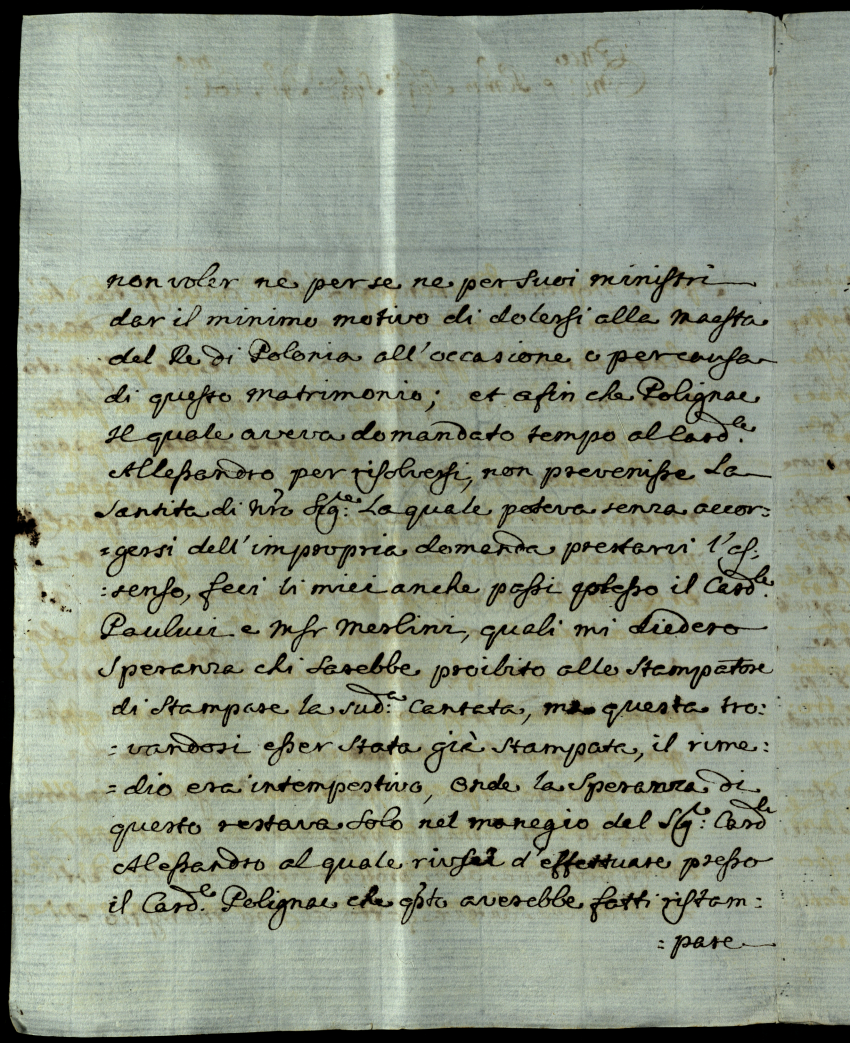 non voler ne per se ne per suoi ministri
dar il minimo motivo di dolersi alla Maesta
del Re di Polonia all'occasione o per causa
di questo matrimonio; et afin che Polignac
Il quale aveva domandato tempo al Card.le
Allessandro per risolversi, non prevenisse La
Santita di Nrõ Sig.re La quale poteva senza accor:
=gersi dell'impropria domanda prestarvi l'as:
:senso, feci li miei anche passi presso il Card.le
Pauluci e Msr Merlini, quali mi diedero
Speranza chi sarebbe proibito alle Stampatore
di Stampare la sud.a Cantata, ma questa tro:
:vandosi esser stata già stampata, il rime:
=dio era intempestivo, onde la Speranza di
questo restava solo nel manegio del Sig.r Card.le
Alessandro al quale riusci d'effettuare presso
il Card.le Polignac che qsto averebbe fatti ristam:
=pare